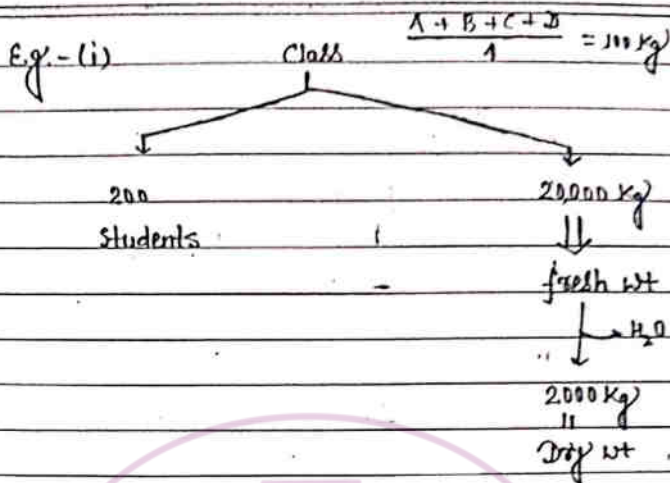 E.g.-(i)
Class
A + B + C + D / 1 = 100 Kg
200
Students
20,000 Kg
fresh wt
H₂O
2000 Kg
Dry wt